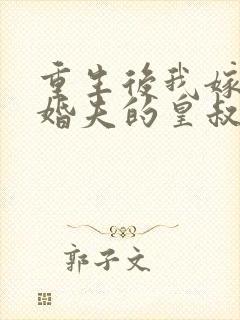 重生後我嫁
婚夫的皇叔
郭子文